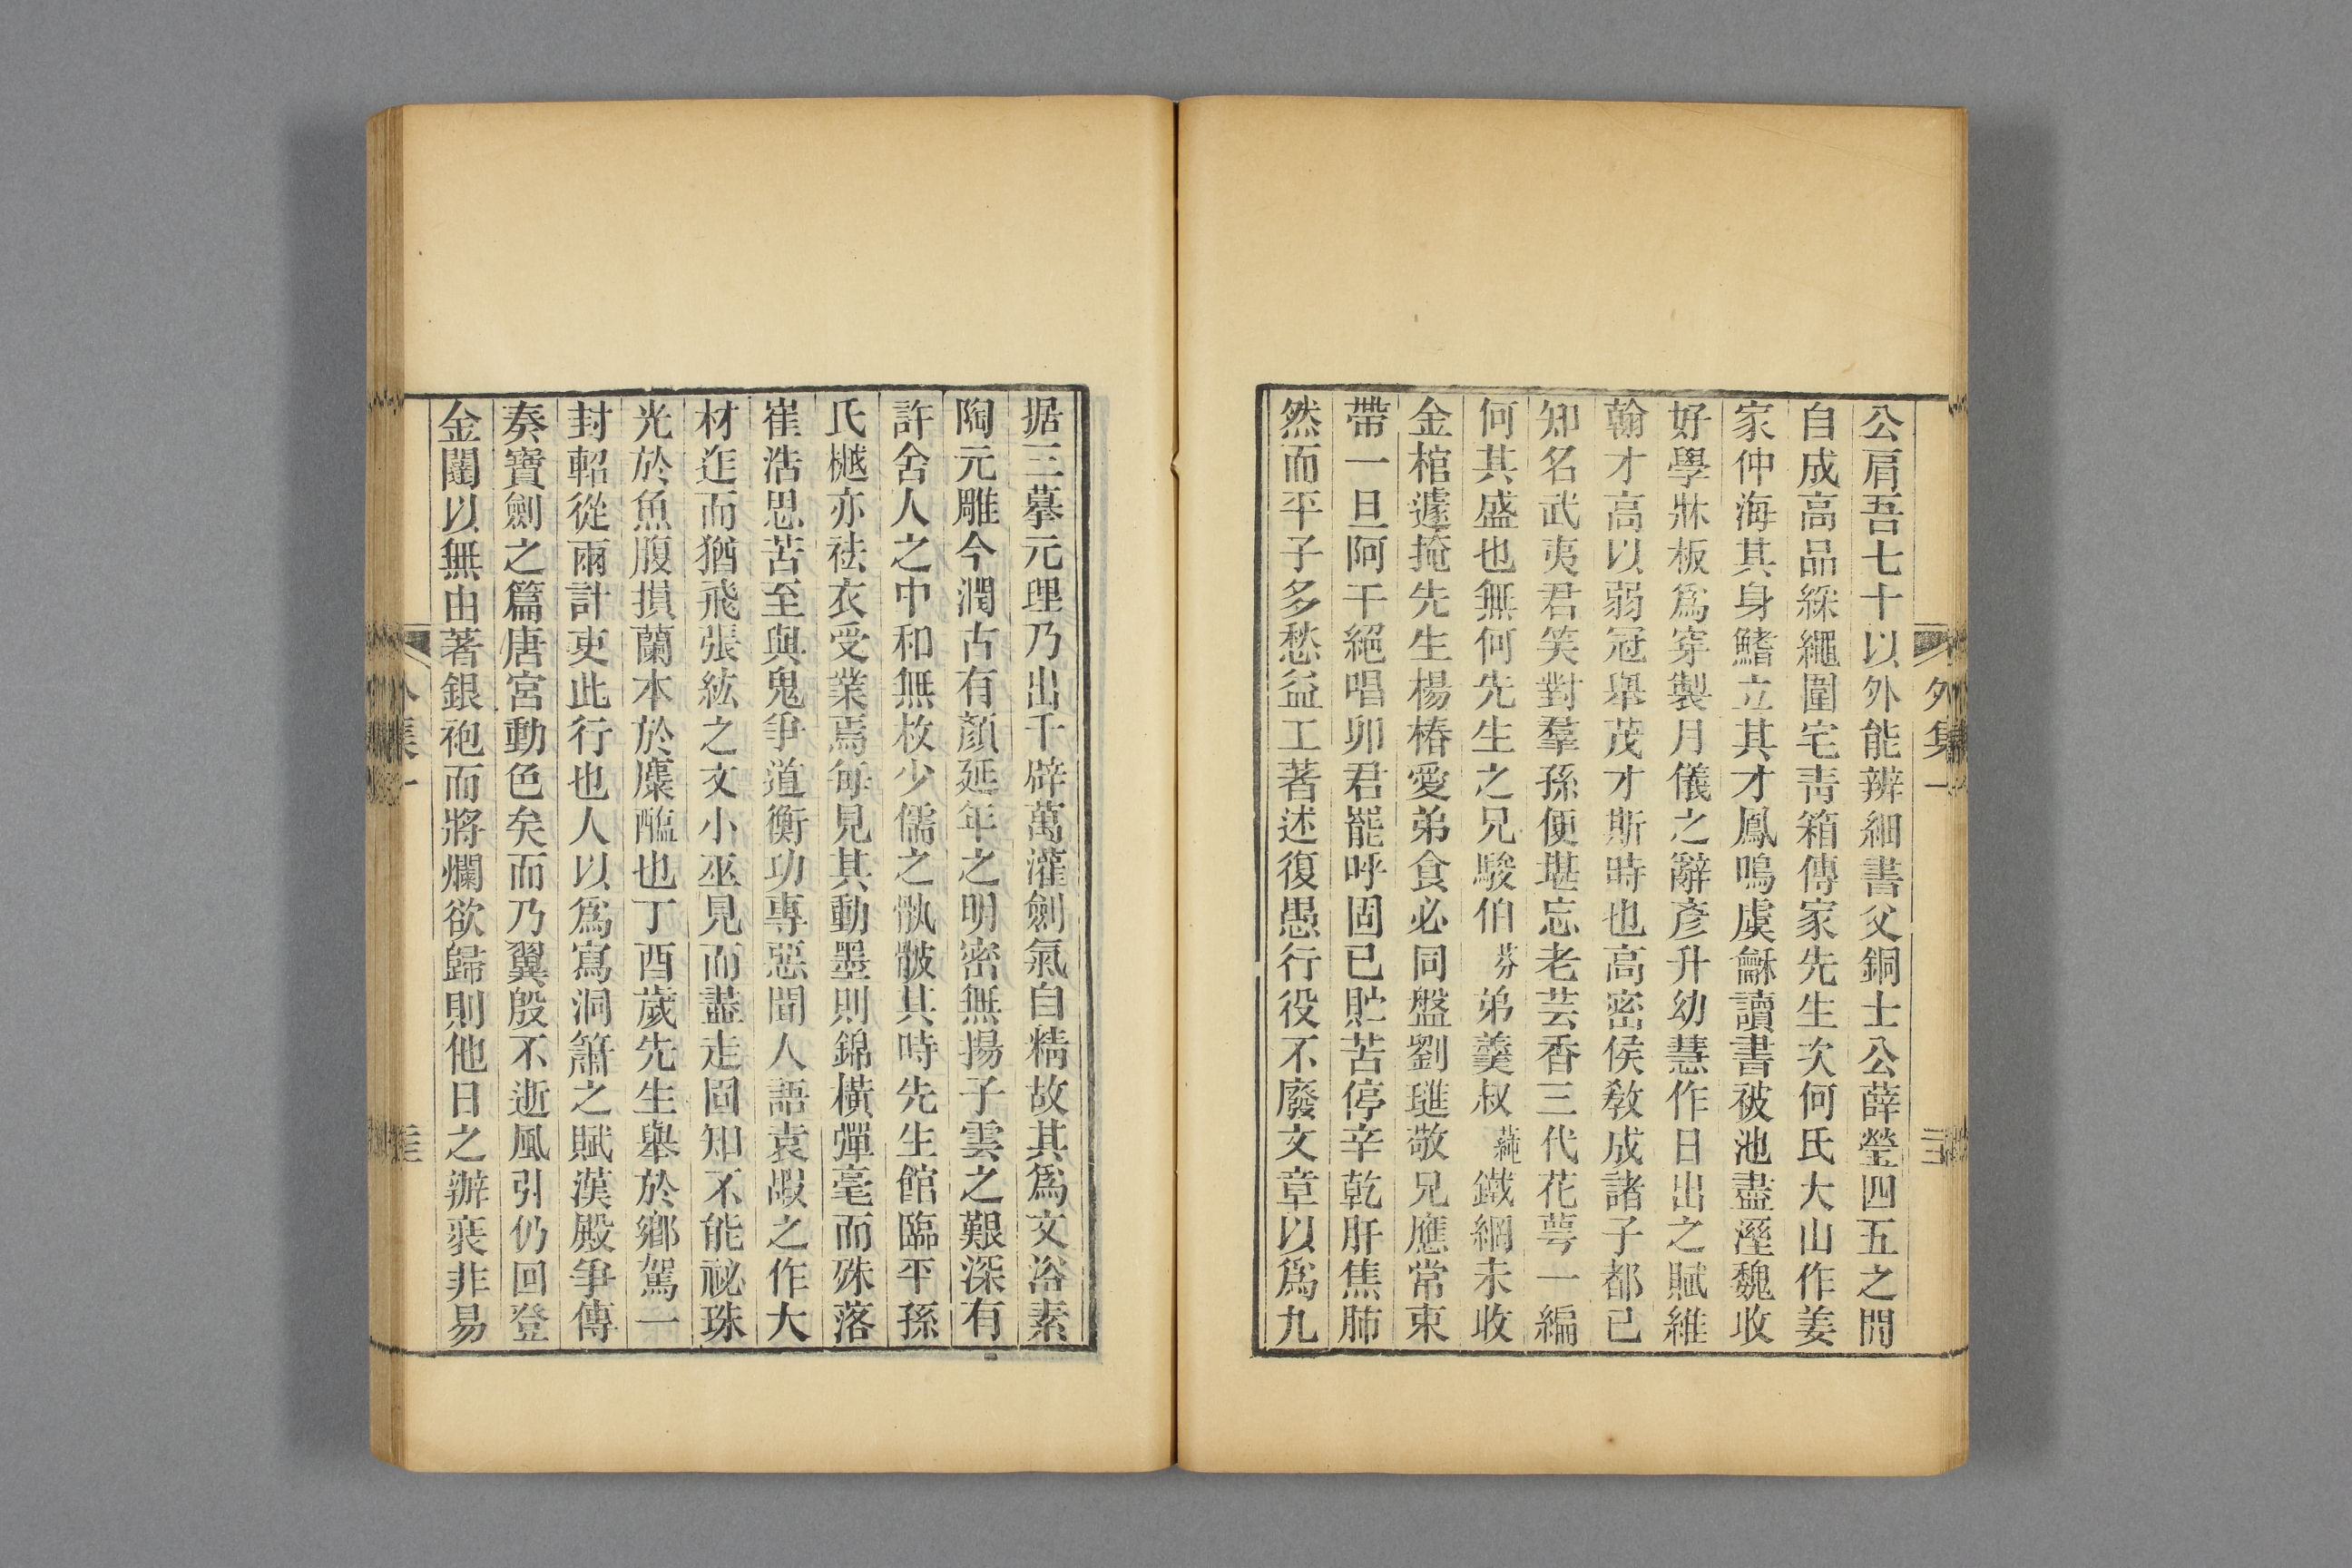 外集一
公肩吾七十以外能辨細書父銅士公薛瑩四五之間
自成高品綵繩圍宅靑箱傳家先生次何氏大山作姜
家仲海其身鰭立其才鳳鳴虞龢讀書被池盡溼魏收
好學牀板爲穿製月儀之辭彥升幼慧作日出之賦維
翰才高以弱冠舉茂才斯時也高密侯敎成諸子都已
知名武夷君笑對羣孫便堪忘老芸香三代花萼一編
何其盛也無何先生之兄駿伯芬弟羹叔蒓鐵網未收
金棺遽掩先生楊椿愛弟食必同盤劉璡敬兄應常束
帶一旦阿干絕唱卯君罷呼固已貯苦停辛乾肝焦肺
然而平子多愁益工著述復愚行役不廢文章以爲九
据三摹元理乃出千辟萬灌劍氣自精故其爲文浴素
陶元雕今潤古有顏延年之明密無揚子雲之艱深有
許舍人之中和無枚少儒之骫骳其時先生館臨平孫
氏樾亦袪衣受業焉每見其動墨則錦橫彈毫而殊落
崔浩思苦至與鬼爭道衡功專惡聞人語袁嘏之作大
材迮而猶飛張紘之文小巫見而盡走固知不能祕珠
光於魚腹損蘭本於麋醢也丁酉歲先生舉於鄉駕一
封軺從兩計吏此行也人以爲寫洞簫之賦漢殿爭傳
奏寶劍之篇唐宮動色矣而乃翼殷不逝風引仍回登
金閨以無由著銀袍而將爛欲歸則他日之辦裝非易
外集一